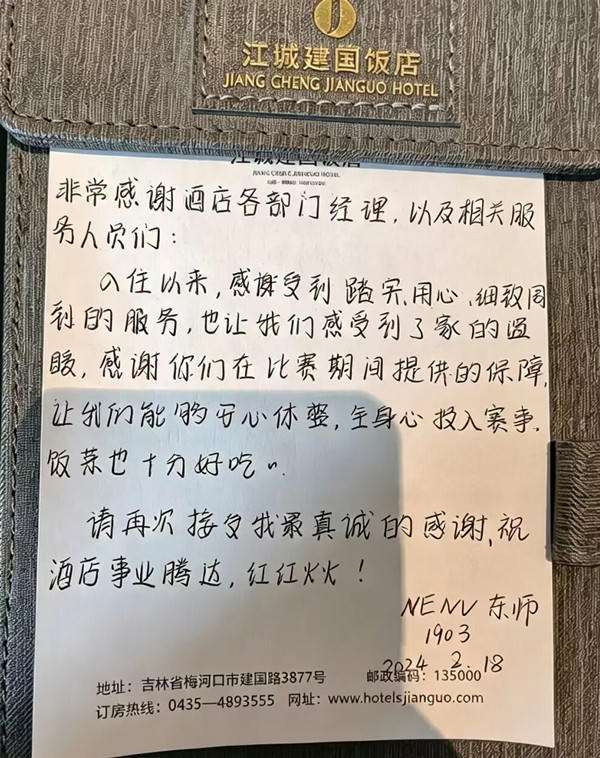 江城建国饭店
JIANG CHENG JIANGUO HOTEL
江城建国饭店
JIANG CHENG JIANGUO HOTEL
非常感谢酒店各部门经理，以及相关服
务人员们：
入住以来，感谢受到踏实、用心、细致周
到的服务，也让我们感受到了家的温
暖，感谢你们在比赛期间提供的保障，
让我们能够安心休整，全身心投入赛事，
饭菜也十分好吃~.
请再次接受我最真诚的感谢，祝
酒店事业腾达，红红火火！
NENU 东师
1903
2024 2.18
地址：吉林省梅河口市建国路3877号 邮政编码：135000
订房热线：0435—4893555 网址：www.hotelsjianguo.com